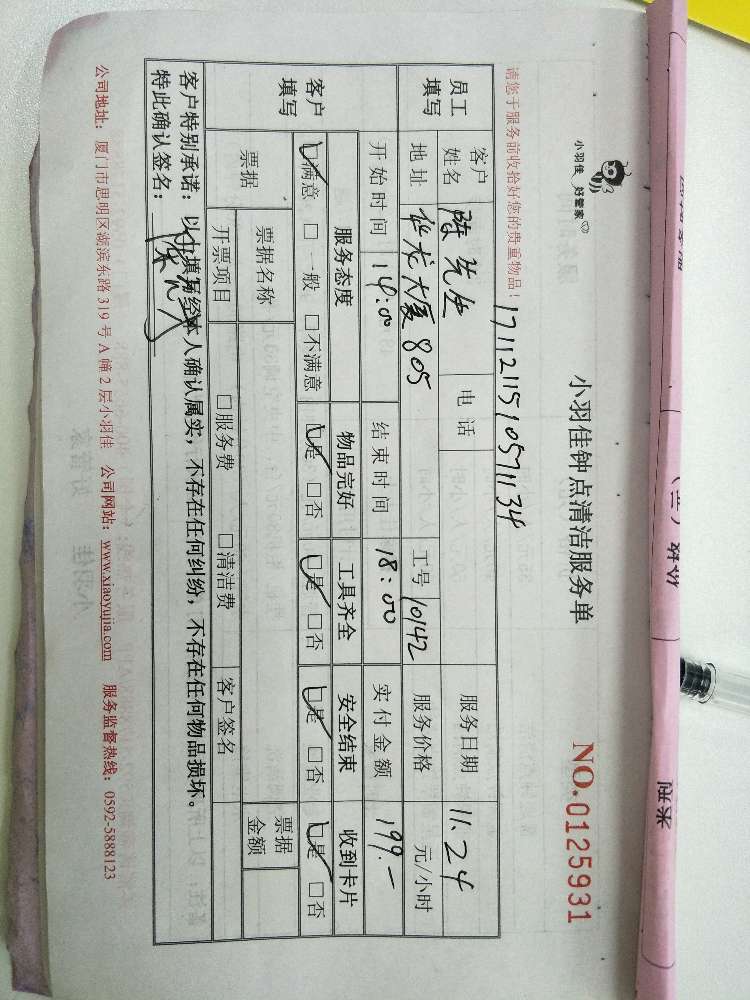 小羽佳 好管家
小羽佳钟点清洁服务单
NO.0125931
请您于服务前收拾好您的贵重物品!
1711211510571134
员工填写 客户姓名 陈先生 电话 服务日期 11.24
地址 华龙大厦805 工号 10142 服务价格 元/小时
客户填写 开始时间 14:00 结束时间 18:00 实付金额 199.-
服务态度 物品完好 工具齐全 安全结束 收到卡片
☑满意 □一般 □不满意 ☑是 □否 ☑是 □否 ☑是 □否 ☑是 □否
票据 票据名称 票据金额
开票项目 □服务费 □清洁费 客户签名
客户特别承诺:以上填写经本人确认属实,不存在任何纠纷,不存在任何物品损坏。
特此确认签名:
公司地址:厦门市思明区湖滨东路319号A幢2层小羽佳 公司网站:www.xiaoyujia.com 服务监督热线:0592-5888123